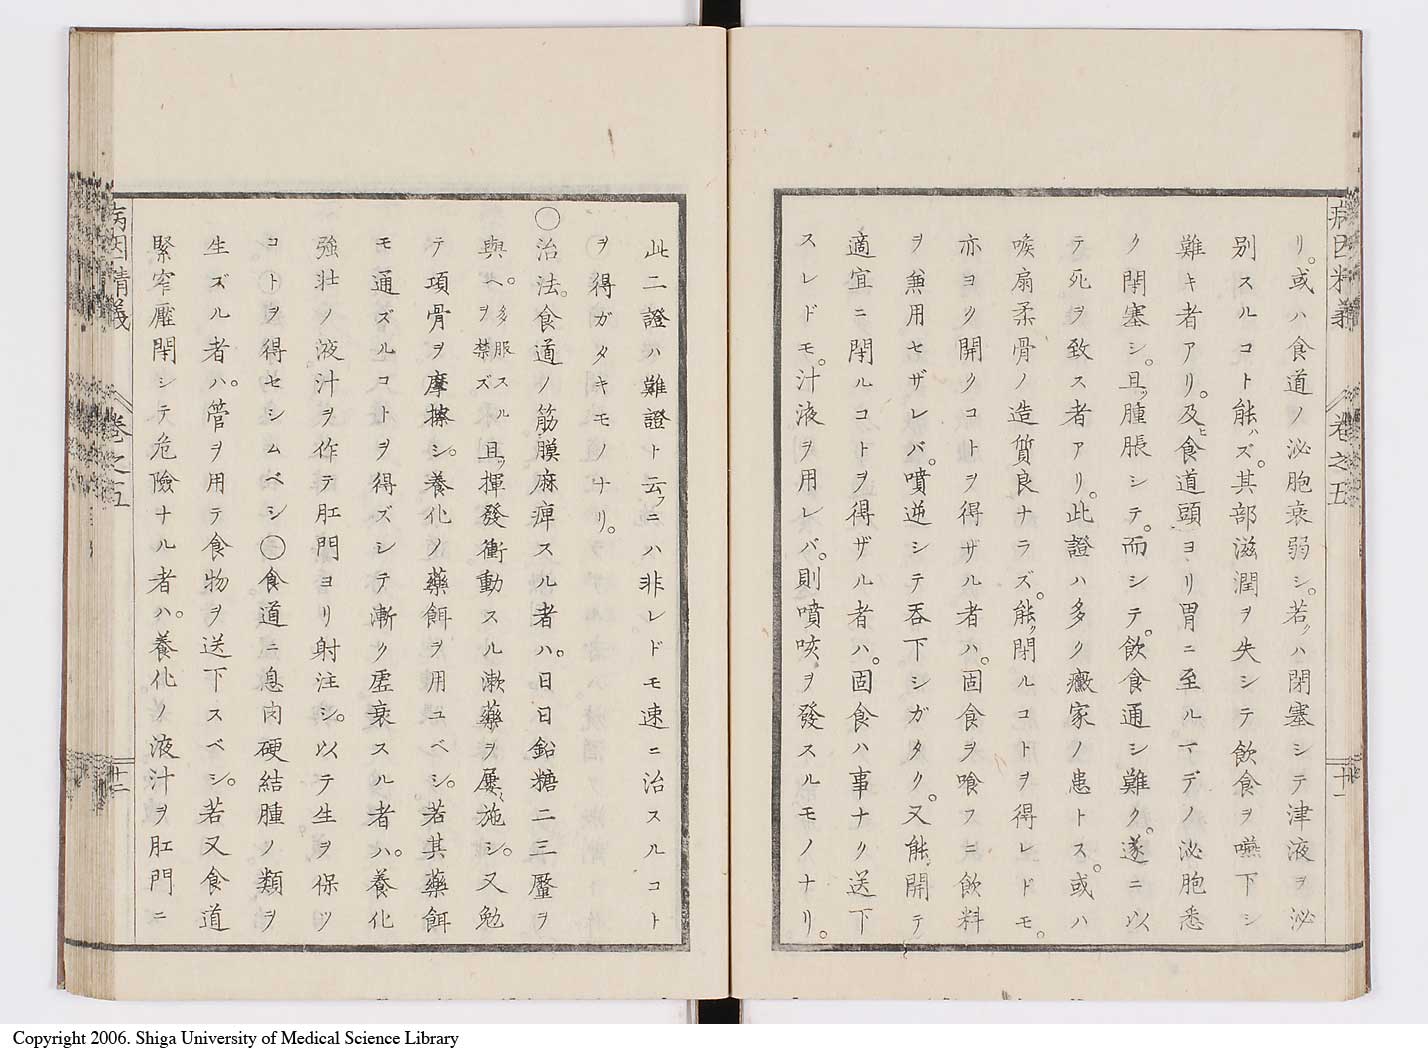 病因精義 卷之五 十一
リ。或ハ食道ノ泌胞衰弱シ。若クハ閉塞シテ津液ヲ泌
別スルコト能ハズ。其部滋潤ヲ失シテ飲食ヲ嚥下シ
難キ者アリ。及ヒ食道頭ヨリ胃ニ至ルマデノ泌胞悉
ク閉塞シ。且ツ腫脹シテ。而シテ。飲食通シ難ク。遂ニ以
テ死ヲ致ス者アリ。此證ハ多ク黴家ノ患トス。或ハ
喉扇柔骨ノ造質良ナラズ。能ク閉ルコトヲ得レドモ。
亦ヨク開クコトヲ得ザル者ハ。固食ヲ喰フニ飲料
ヲ兼用セザレバ。噴逆シテ吞下シガタク。又能ク開テ
適宜ニ閉ルコトヲ得ザル者ハ。固食ハ事ナク送下
スレドモ。汁液ヲ用レバ。則噴咳ヲ發スルモノナリ。
此二證ハ難證ト云フニハ非レドモ速ニ治スルコト
ヲ得ガタキモノナリ。
○治法。食道ノ筋膜麻痺スル者ハ。日日鉛糖二三釐ヲ
與ヘ。多服スルヲ禁ズ 且ツ揮發衝動スル漱藥ヲ屢〻施シ。又勉
テ項骨ヲ摩擦シ。養化ノ藥餌ヲ用ユベシ。若其藥餌
モ通ズルコトヲ得ズシテ漸ク虛衰スル者ハ。養化
強壯ノ液汁ヲ作テ肛門ヨリ射注シ。以テ生ヲ保ツ
コトヲ得セシムベシ○食道ニ息肉硬結腫ノ類ヲ
生ズル者ハ。管ヲ用テ食物ヲ送下スベシ。若又食道
緊窄壓閉シテ危險ナル者ハ。養化ノ液汁ヲ肛門ニ
病因精義 卷之五 十二
Copyright 2006. Shiga University of Medical Science Library